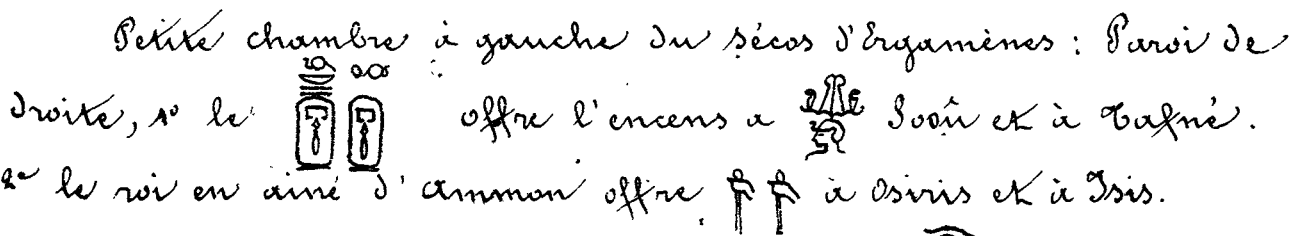 Petite chambre à gauche du sécos d'Ergamènes : Paroi de
droite, 1° le offre l'encens a Sooû et à Tafné.
2° le roi en ainé d'ammon offre à Osiris et à Isis.